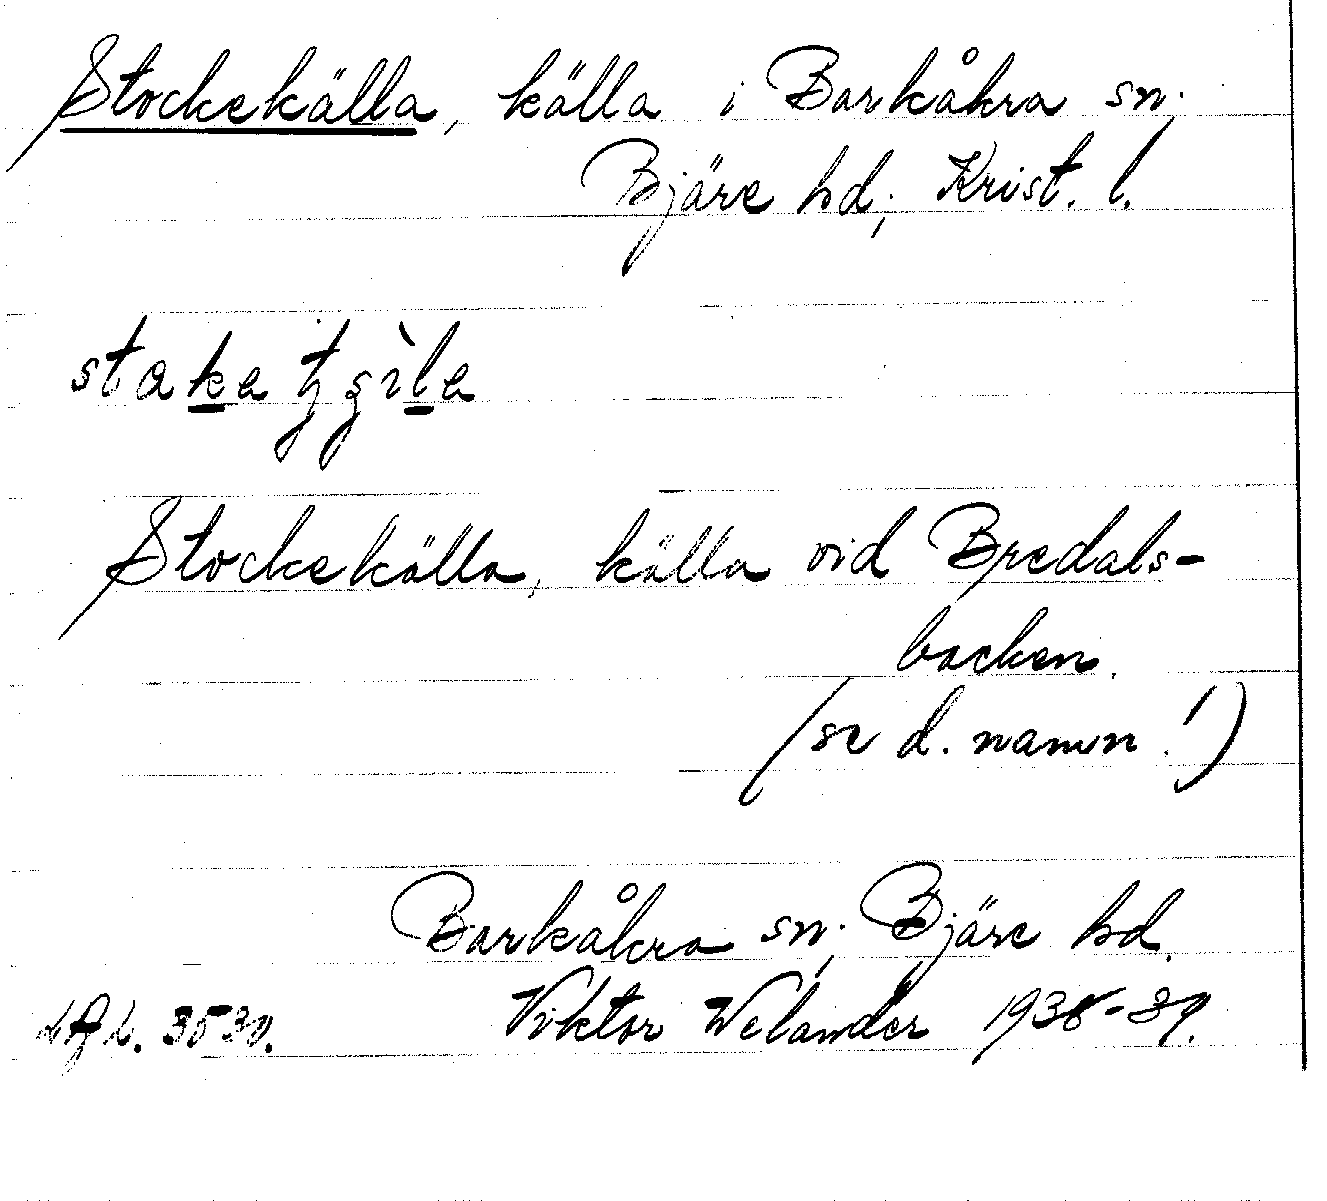 Stockekälla, källa i Barkåkra sn;
Bjäre hd; Krist. l.
Stockekälla, källa vid Bredals-
backen.
(se d. namn!)
Barkåkra sn; Bjäre hd.
3530. Viktor Welander 1938-39.